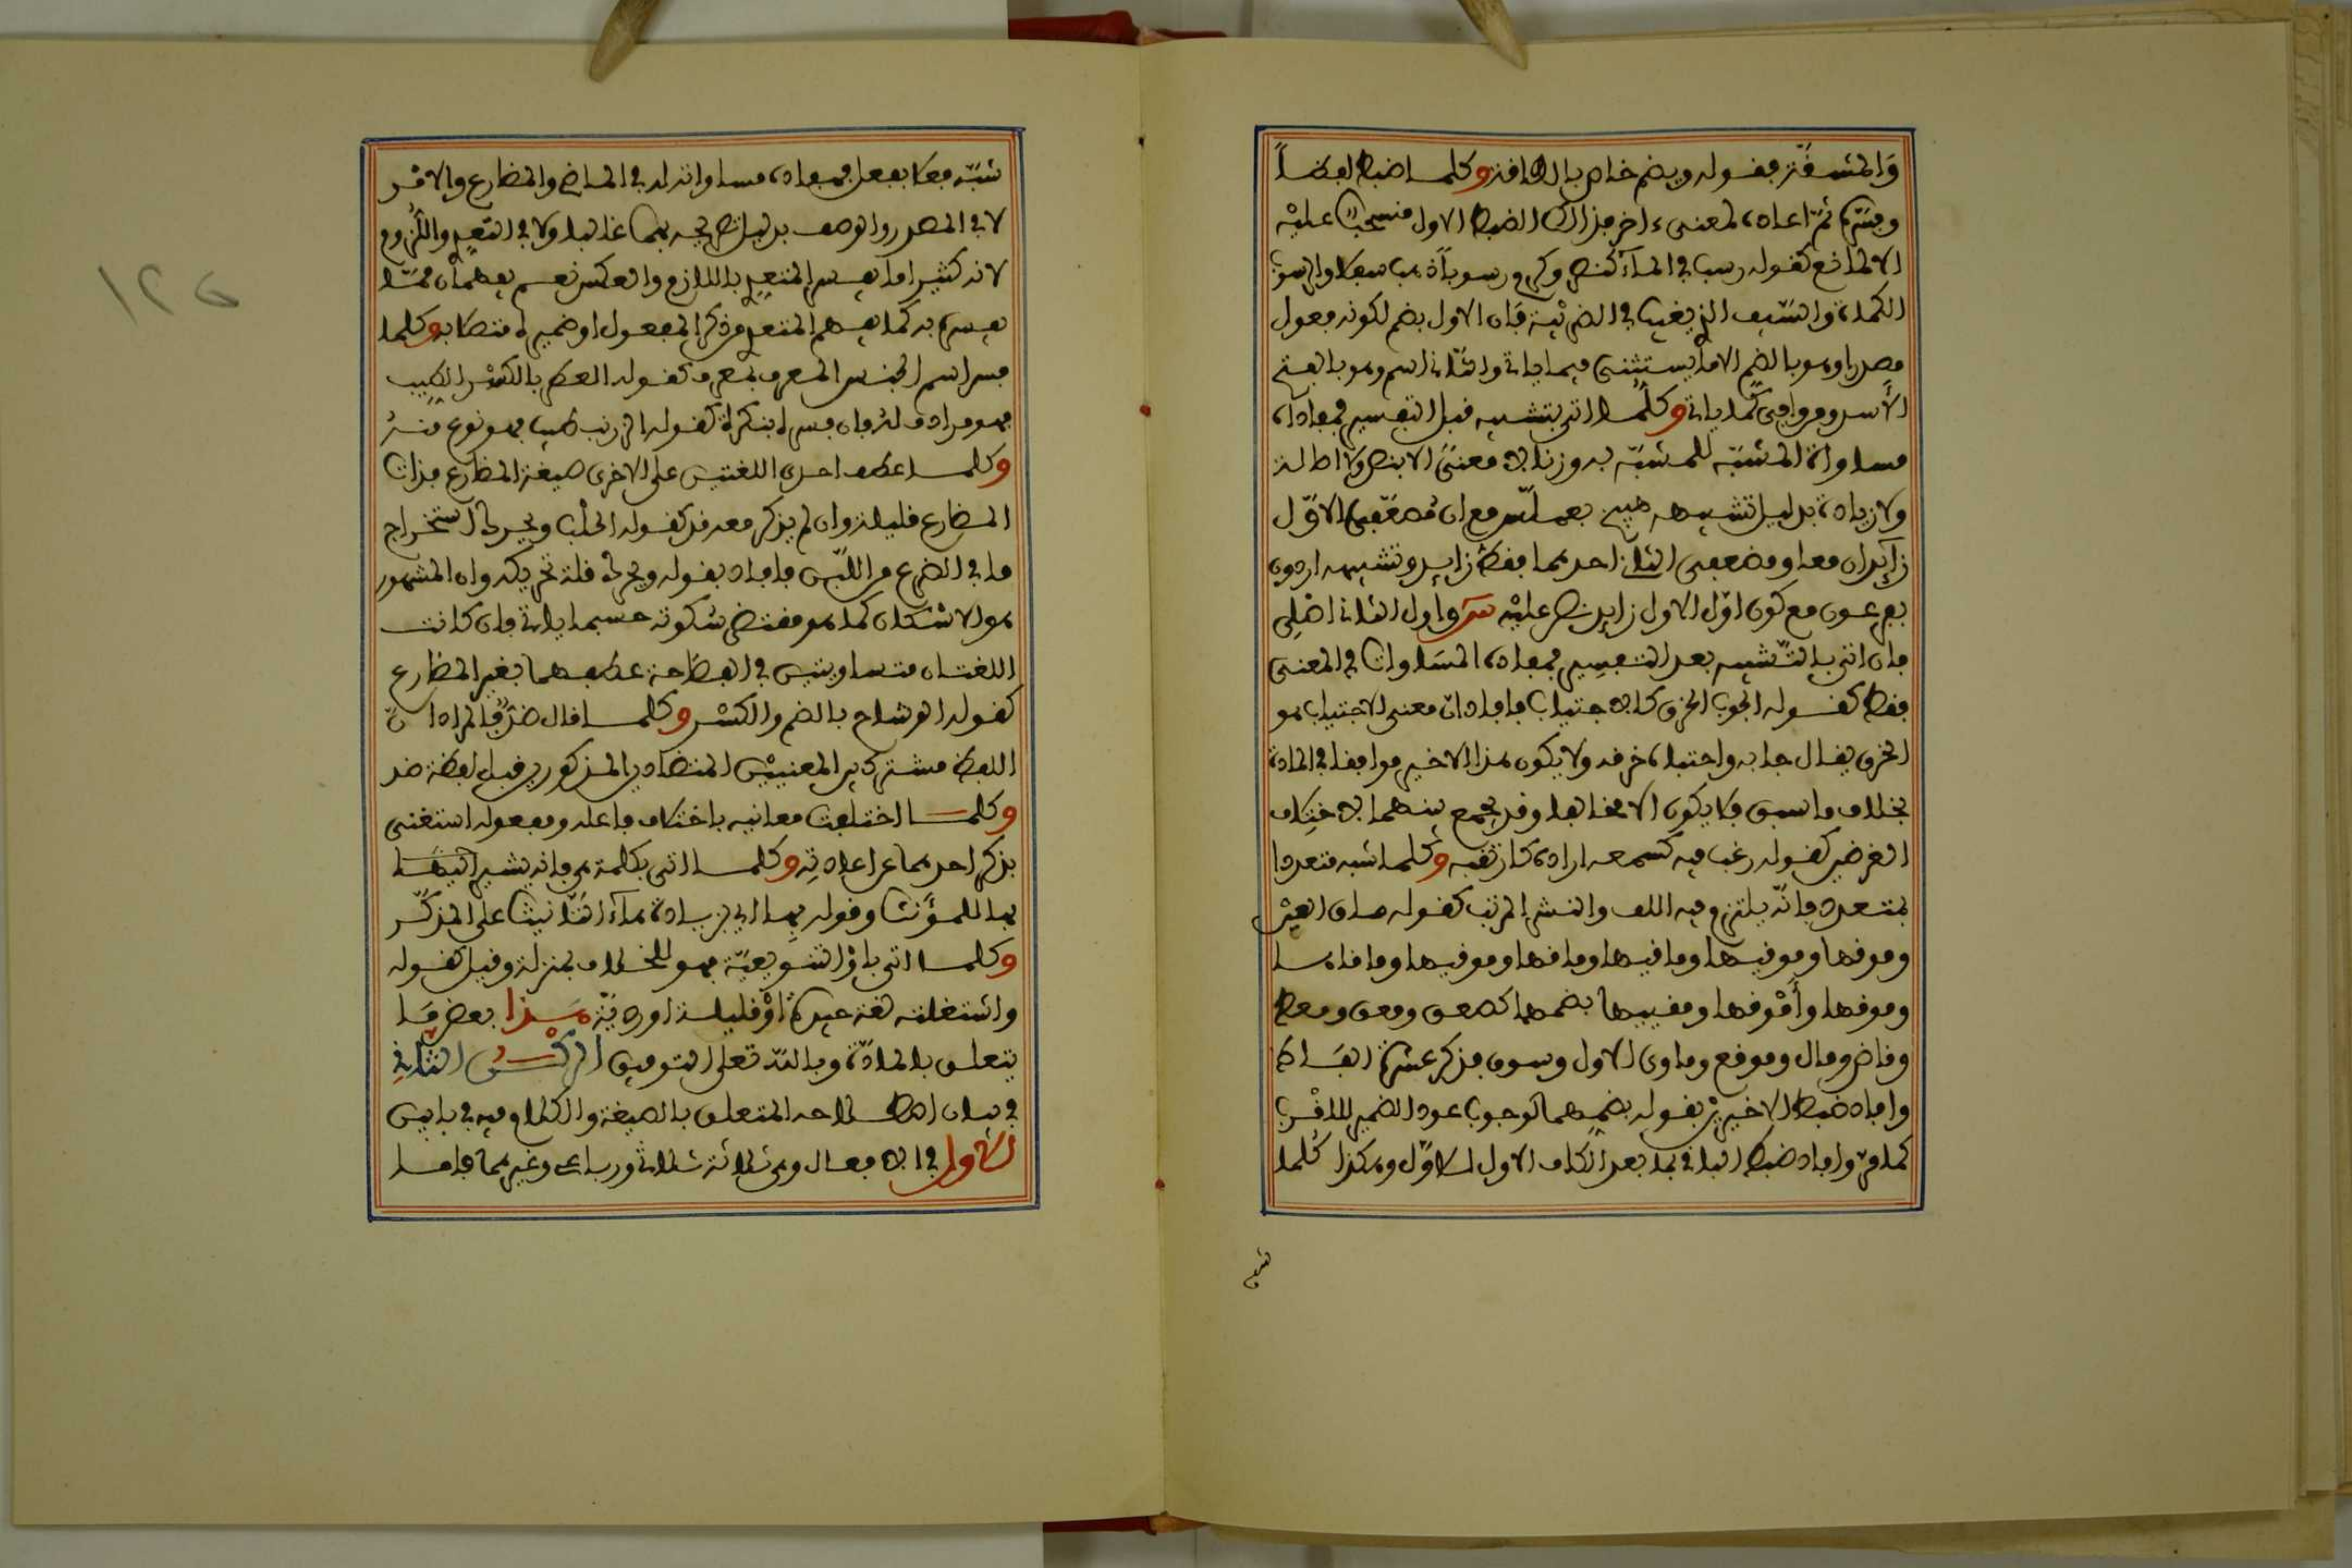 وَالمشقّة فقوله ويضم خاص بالطاقة وكلما ضبط لفظاً
وفسّره ثمّ اعاده لمعنىً ءاخر فذاك الضبط الاول منسحب عليه
الا لمانع كقوله رسب في المآء كنصر وكرم رسوباً
الكمرة والسّيف الذي يغيب في الضريبة فان الاول بضم لكونه مفعول
مصدريا وهو بالضم الا ما يستثنى فيما ياتي والثاني اسم وهو بالفتح
كما ياتي وكلّما اتى بتشبيه قبل التفسير فمفاده
مساواة المشبّه للمشبّه به وزنا لا معنىً الا بنص ولا اصالة
ولا زيادة بدليل تشبيهه بعملّس مع ان مُضعّفي الاوّل
زآيدان معا ومضعفي الثاني احدهما فقط زايد وتشبيهه اردون
بفرعون مع كون اوّل الاول زايد نص عليه واول الثاني اصْلي
فان اتى بالتّشبيه بعد التفسير فمفاده المسَاواة في المعنى
فقط كقوله الجوب الخرق كالاجتياب فافاد انّ معنى الاجتياب هو
الخرق يقال جابه واجتابه خرقه ولا يكون هذا الاخير موافقا في المادة
بخلاف ما سبق فلا يكون الا مخالفا وقد يجمع بينهما لاختلاف
الغرضين كقوله رغب فيه كسمعه اراده كارتغبه وكلما شبه متعددا
بمتعدد فانّه يلتزم فيه اللف والنشر المرتب كقوله ماق العين
وموقها وموقيها وماقيها وماقها وموقيها وماقاها
وموقها وأمْوقها ومقييها بضمهما كصعق ومعق ومعط
وقاض ومال وموقع وماوى الاول وسوق فذكر عشرة الفاظ
وافاد ضبط الاخيرين بقوله بضمهما لوجوب عود الضمير للاقْرب
كما مرّ وافاد ضبط الباقي بما بعد الكاف الاول للاوّل وهكذا كُلما
شبّه
شبّه فعلا بفعل فمفاده مساواته له في الماضي والمضارع والامْر
لا في المصدر والوصف بدليل تصريحه بهما غالبا ولا في التعدي واللّزوم
لانه كثيرا ما يفسر المتعدي باللازم والعكس نعم يفهمان ممّا
يفسره به كما يفهم المتعدي من ذكر المفعول او ضميره متصلا به وكلما
فسر اسم الجنس المعرف بمعرف كقوله العطر بالكسْر الطيب
فهو مرادف له فان فسره بنكرة كقوله الزرنب طيب فهو نوع منهُ
وكلما عطف احدى اللغتين على الاخرى صيغة المضارع فذات
المضارع قليلة وان لم يذكر معه قد كقوله الحلْب ويحرك استخراج
ما في الضرع من اللّبن فافاد بقوله ويحرك قلة تحريكه وان المشهور
هو الاسكان كما هو مقتضى سُكوته حسبما ياتي فان كانت
اللغتان متساويتين في الفصاحة عطفهما بغير المضارع
كقوله الوشاح بالضم والكسْر وكلما قال ضدّ فالمراد انّ
اللفظ مشترك بين المعنييْن المتضادين المذكورين قبل لفظة ضد
وكلما اختلفت معانيه باختلاف فاعله ومفعوله استغنى
بذكر احدهما عن اعادته وكلما اتى بكلمة هي فانه يشير اليها
بها للمؤنث وقوله بهآء اي بزيادة هآء التّانيث على المذكّر
وكلما اتى باوْ التنويعيّة فهو للخلاف بمنزلة وقيل كقوله
واشتغلته لغة جيدة اوْ قليلة او رديّة هذا بعض مَا
يتعلق بالمادّة وبالله تعلى التوفيق الركن الثاني
في بيان اصطلاحه المتعلق بالصيغة والكلام فيه في بابين
الاول في الافعال وهي ثلاثة ثلاثي ورباعي وغيرهما فاما